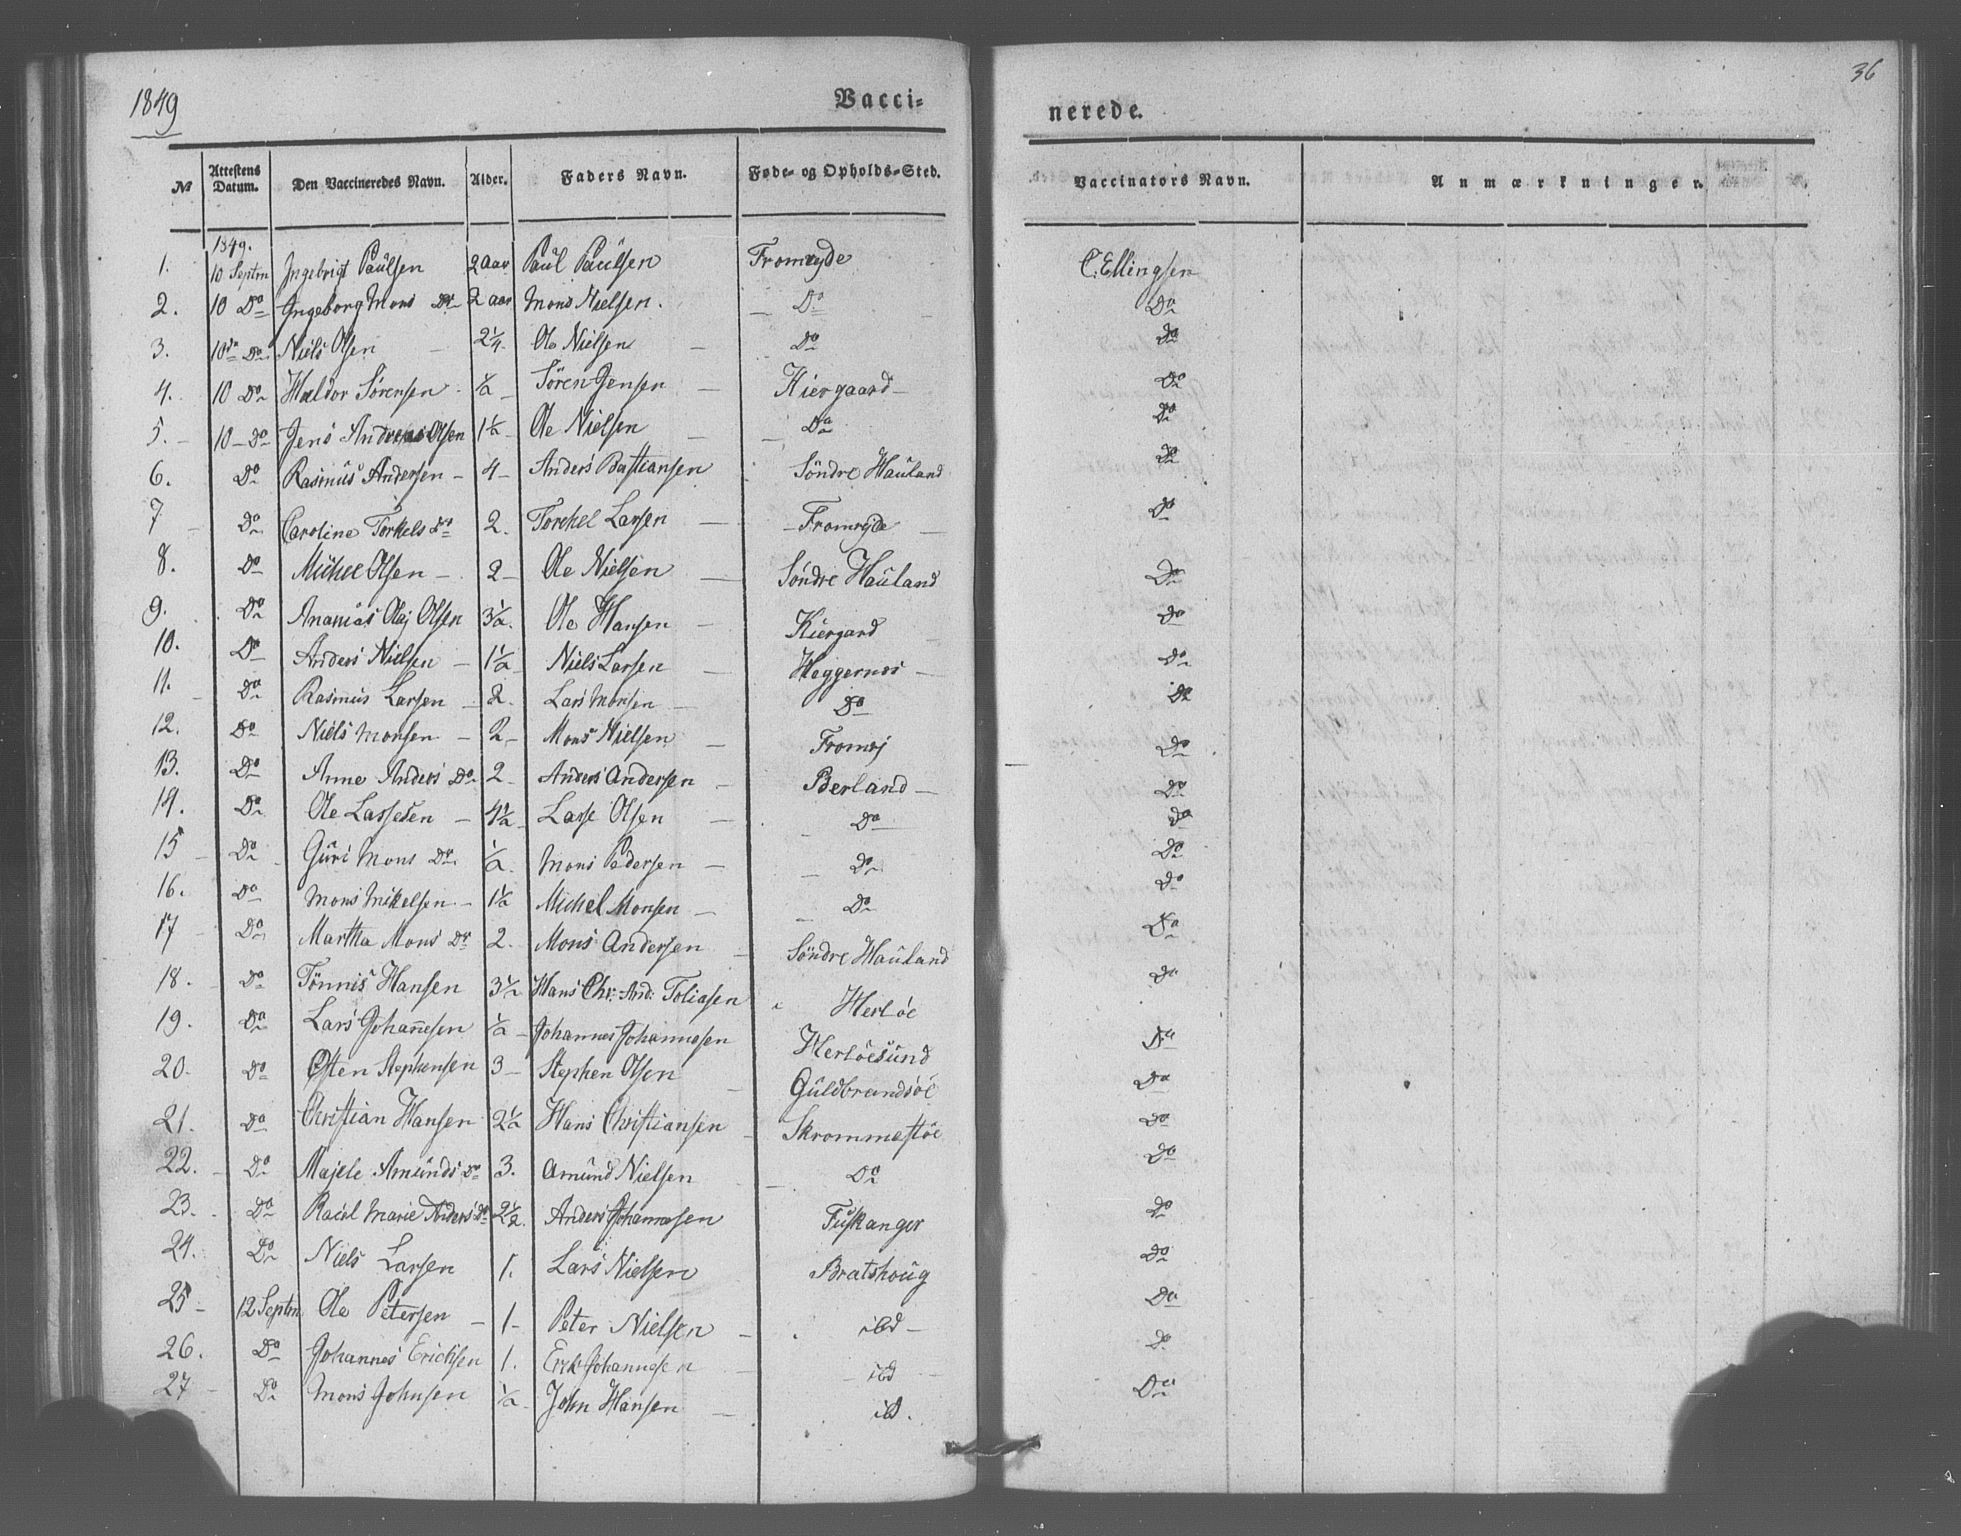 1849
Vacci=
nerede.
36
№ Attestens Datum. Den Vaccineredes Navn. Alder. Faders Navn. Føde- og Opholds-Sted. Vaccinators Navn. Anmærkninger.
1849.
1. 10 Septm Ingebrigt Paulsen 2 aar Paul Paulsen Fromrejde C. Ellingsen
2. 10 Do Ingeborg Mons Dr 2 aar Mons Nielsen. Do Do
3. 10de Do Niels Olsen 2 1/4 Ole Nielsen Do Do
4. 10 Do Haldor Sørensen 1/2 Sören Jensen Kiergaard Do
5. 10 Do Jens Andreas Olsen 1 1/2 Ole Nielsen Do Do
6. Do Rasmus Andersen 4 Anders Bastiansen Söndre Hauland Do
7 Do Caroline Torkels Do 2. Torchel Larsen Fromrejde Do
8. Do Michel Olsen 2 Ole Nielsen Söndre Hauland Do
9. Do Ananias Olaj Olsen 3 1/2. Ole Hansen Kiergard Do
10. Do Anders Nielsen 1 1/2 Niels Larsen Heggernes Do
11. Do Rasmus Larsen 2. Lars Monsen Do Do
12. Do Niels Monsen 2 Mons Nielsen Fromrj Do
13. Do Anne Anders Do 2 Anders Andersen Berland Do
14. Do Ole Lassesen 4 1/2 Lasse Olsen Do Do
15 Do Guri Mons Dr. 1/2. Mons Pedersen Do Do
16. Do Mons Mikelsen 1 1/2 Michel Monsen Do Do
17 Do Martha Mons Dr 2. Mons Andersen Söndre Hauland Do
18. Do Tönnis Hansen 3 1/2 Hans Chr. And: Toliasen Herlöe Do
19. Do Lars Johannesen 1/2 Johannes Johannesen Herlöesund Do
20. Do Østen Stephensen 3 Stephen Olsen Guldbrandsöe Do
21. Do Christian Hansen 2 1/2 Hans Christiansen Skrommestöe Do
22. Do Majele Amunds Do 3. Amund Nielsen Do Do
23. Do Rachel Marie Anders Dr 2 1/2. Anders Johannesen Fuskanger Do
24. Do Niels Larsen 1. Lars Nielsen Bratshoug Do
25 12 Septm Ole Petersen 1 Peter Nielsen ibd Do
26. Do Johannes Erichsen 1. Erik Johannesen ibd Do
27 Do Mons Johnsen 1/2. John Hansen ibd. Do